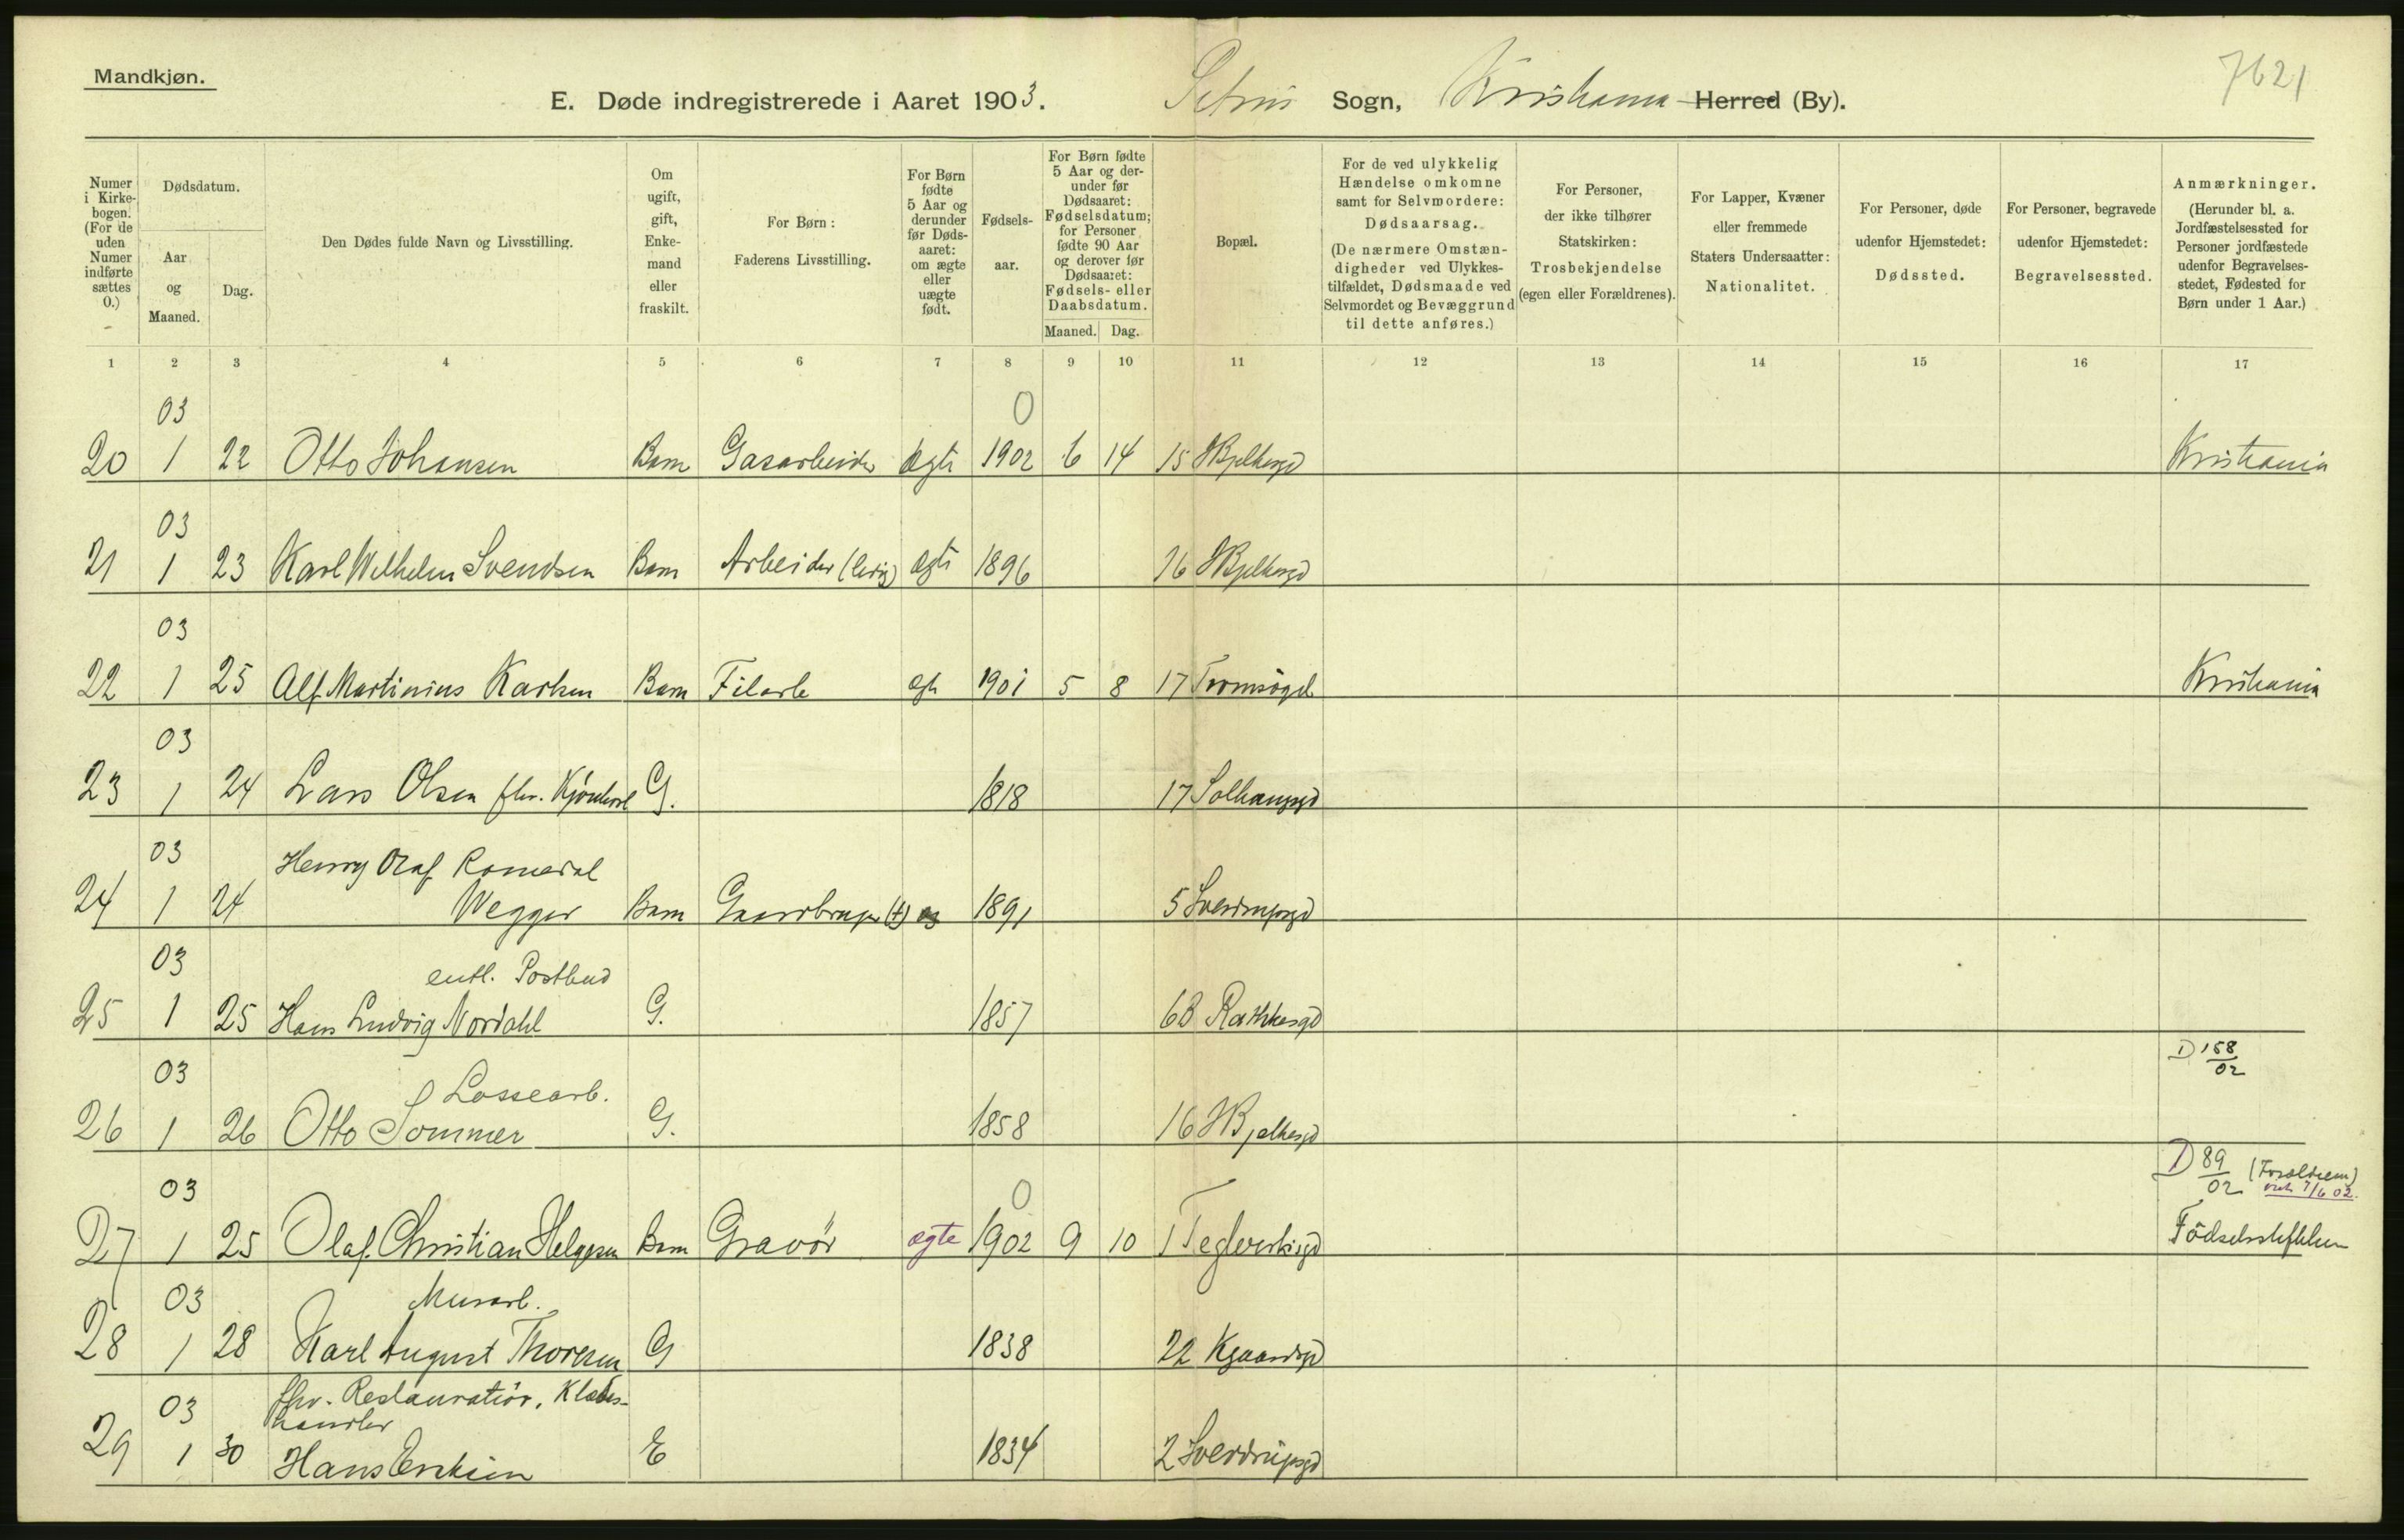 Mandkjøn.
7621
E. Døde indregistrerede i Aaret 1903. Petrus Sogn, Kristiania Herred (By).
Numer i Kirkebogen. (For de uden Numer indførte sættes 0.)
Dødsdatum.
Aar og Maaned.
Dag.
Den Dødes fulde Navn og Livsstilling.
Om ugift, gift, Enkemand eller fraskilt.
For Børn: Faderens Livsstilling.
For Børn fødte 5 Aar og derunder før Dødsaaret: om ægte eller uægte født.
Fødselsaar.
For Børn fødte 5 Aar og derunder før Dødsaaret: Fødselsdatum; for Personer fødte 90 Aar og derover før Dødsaaret: Fødsels- eller Daabsdatum.
Maaned. Dag.
Bopæl.
For de ved ulykkelig Hændelse omkomne samt for Selvmordere: Dødsaarsag. (De nærmere Omstændigheder ved Ulykkestilfældet, Dødsmaade ved Selvmordet og Bevæggrund til dette anføres.)
For Personer, der ikke tilhører Statskirken: Trosbekjendelse (egen eller Forældrenes).
For Lapper, Kvæner eller fremmede Staters Undersaatter: Nationalitet.
For Personer, døde udenfor Hjemstedet: Dødssted.
For Personer, begravede udenfor Hjemstedet: Begravelsessted.
Anmærkninger. (Herunder bl. a. Jordfæstelsessted for Personer jordfæstede udenfor Begravelsesstedet, Fødested for Børn under 1 Aar.)
1 2 3 4 5 6 7 8 9 10 11 12 13 14 15 16 17
03 0
20 1 22 Otto Johansen Barn Gasarbeider ægte 1902 6 14 15 HBjelkesgd Kristiania
03
21 1 23 Karl Wilhelm Svendsen Barn Arbeider (ledig) ægte 1896 76 HBjelkesgd
03
22 1 25 Alf Martinius Karlsen Barn Filarb æg 1901 5 8 17 Tromsøgd Kristiania
03
23 1 24 Lars Olsen fhv. G. 1818 17 Solhaugsgd
03 Henry Olaf Romedal
24 1 24 Wegger Barn Gaardbruger (†) æg 1891 5 Sverdrupsgd
03 entl. Postbud
25 1 25 Hans Ludvig Nordahl G. 1857 6B Rathkesgd
03 Lossearb. D 158/02
26 1 26 Otto Sommer G. 1858 16 HBjelkesgd
03 0 D 89/02 (Forældrene) 7/6 02.
27 1 25 Olaf Christian Helgesen Barn Gravør ægte 1902 9 10 1 Teglverksgd Fødselsstiftelsen
03 Murarb.
28 1 28 Karl August Thoresen G 1838 22 Kgaardsgd
03 fhv. Restauratiør, Klædes-
handler
29 1 30 Hans E 1834 2 Sverdrupsgd